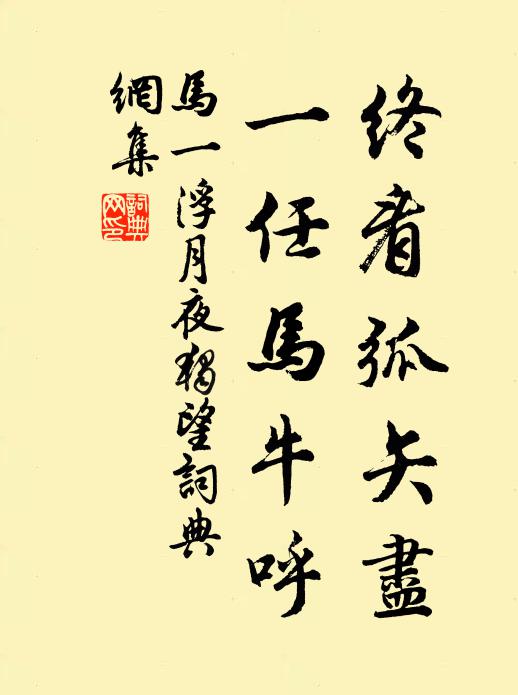 終看弧矢盡
一任馬牛呼
馬一浮月夜獨望詞典
網集
詞典
网印